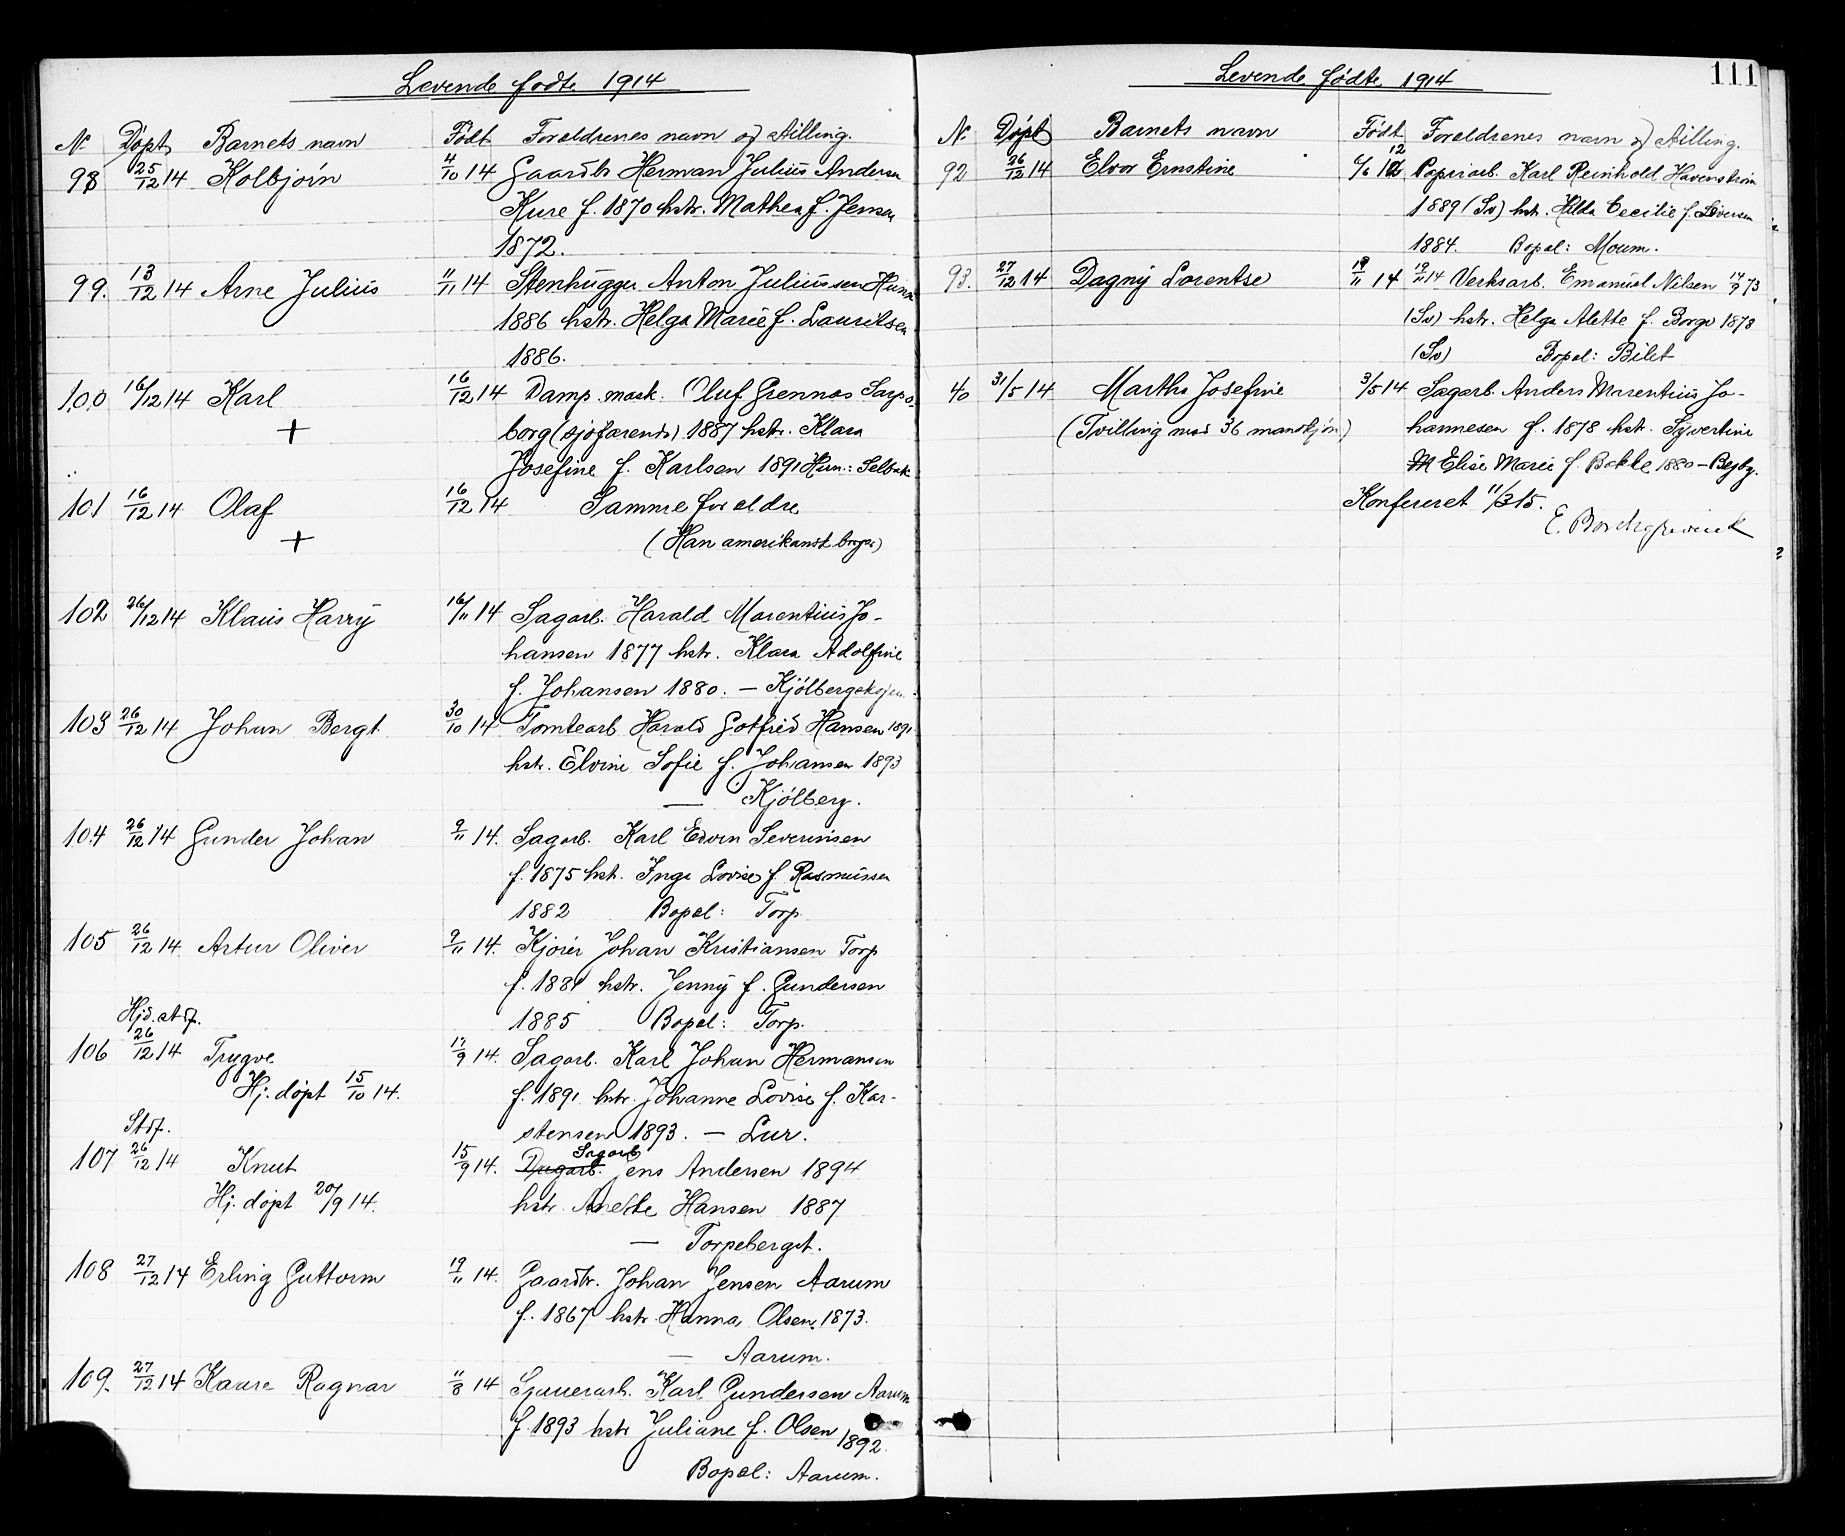 Levende fødte 1914
N Døpt Barnets navn Født Forældrenes navn og stilling.
98 25/12 14 Kolbjørn 4/10 14 Gaardbr Herman Julius Andersen
Kure f. 1870 hstr. Mathea f. Jensen
1872.
99. 13/12 14 Arne Julius 11/11 14 Stenhugger Anton Juliussen
1886 hstr. Helga Marie f. Lauritsen
1886.
100 16/12 14 Karl 16/12 14 Damp. mask. Oluf Grennos Sarps-
+ borg (sjøfarende) 1887 hstr. Klara
Josefine f. Karlsen 1891 Hun: Selbak
101 16/12 14 Olaf 16/12 14 Samme forældre
+ (Han amerikansk borger)
102 26/12 14 Klaus Harry 16/11 14 Sagarb. Harald Marentius Jo-
hansen 1877 hstr. Klara Adolfine
f. Johansen 1880. — Kjølbergskogen.
103 26/12 14 Johan Bergt 30/10 14 Tomtearb Harald Gotfred Hansen 1891
hstr. Elvine Sofie f. Johansen 1893
— Kjølberg.
104 26/12 14 Gunder Johan 9/11 14. Sagarb. Karl Edvin Severinsen
f. 1875 hstr. Inga Lovise f. Rasmussen
1882 Bopel: Torp
105 26/12 14 Artur Oliver 9/11 14. Kjører Johan Kristiansen Torp
f. 1881 hstr. Jenny f. Gundersen
1885 Bopel: Torp.
Hjd. stf.
106 26/12 14 Trygve 17/9 14. Sagarb. Karl Johan Hermansen
Hj. døpt 15/10 14. f. 1891 hstr. Johanne Lovise f. Kar-
stensen 1893. — Lur.
Stf. Sagarb
107 26/12 14 Knut 15/9 14. Dagarb. Jens Andersen 1894
Hj. døpt 20/9 14. hstr. Anette Hansen 1887
— Torpeberget.
108 27/12 14 Erling Guttorm 19/11 14. Gaardbr. Johan Jensen Aarum
f. 1867 hstr. Hanna Olsen 1873.
— Aarum.
109. 27/12 14 Kaare Ragnar 11/8 14 Karl Gundersen Aarum
f. 1893 hstr Juliane f. Olsen 1892.
Bopel: Aarum.
111
Levende fødte 1914
N. Døpt Barnets navn Født Forældrenes navn og stilling.
92 26/12 14 Elvor Ernstine 6/6 12 Papirarb. Karl Reinhold Havenstrøm
1889 (Sv) hstr. Hilda Cecilie f. Siversen
1884. Bopel: Moum.
93. 27/12 14 Dagny Lorentse 19/11 14 19/11 14 Verksarb. Emanuel Nilsen 14/9 73
(Sv) hstr. Helga Alette f. Borge 1878
(Sv) Bopel: Bilet
40 31/5 14 Martha Josefine 3/5 14 Sagarb. Anders Marentius Jo-
(Tvilling med 36 mandkjøn) hannesen f. 1878 hstr. Syvertine
Elise Marie f. Bakke 1880 — Begby.
Konfereret 11/3 15.
E. Borchgrevink